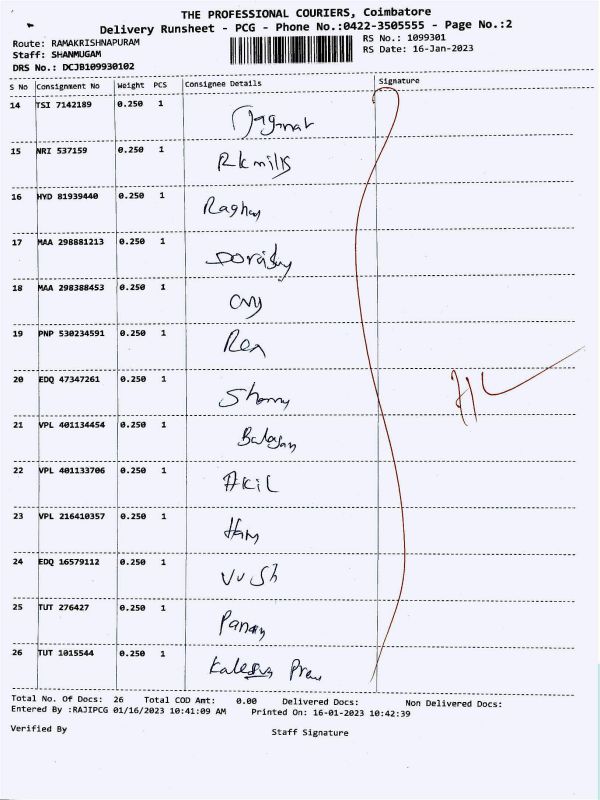 THE PROFESSIONAL COURIERS, Coimbatore
Delivery Runsheet - PCG - Phone No.:0422-3505555 - Page No.:2
Route: RAMAKRISHNAPURAM RS No.: 1099301
Staff: SHANMUGAM RS Date: 16-Jan-2023
DRS No.: DCJB109930102
S No Consignment No Weight PCS Consignee Details Signature
14 TSI 7142189 0.250 1
15 NRI 537159 0.250 1 Rk mills
16 HYD 81939440 0.250 1 Raghav
17 MAA 298881213 0.250 1
18 MAA 298388453 0.250 1
19 PNP 530234591 0.250 1
20 EDQ 47347261 0.250 1
21 VPL 401134454 0.250 1
22 VPL 401133706 0.250 1 Akil
23 VPL 216410357 0.250 1
24 EDQ 16579112 0.250 1
25 TUT 276427 0.250 1
26 TUT 1015544 0.250 1
Total No. Of Docs: 26 Total COD Amt: 0.00 Delivered Docs: Non Delivered Docs:
Entered By :RAJIPCG 01/16/2023 10:41:09 AM Printed On: 16-01-2023 10:42:39
Verified By Staff Signature